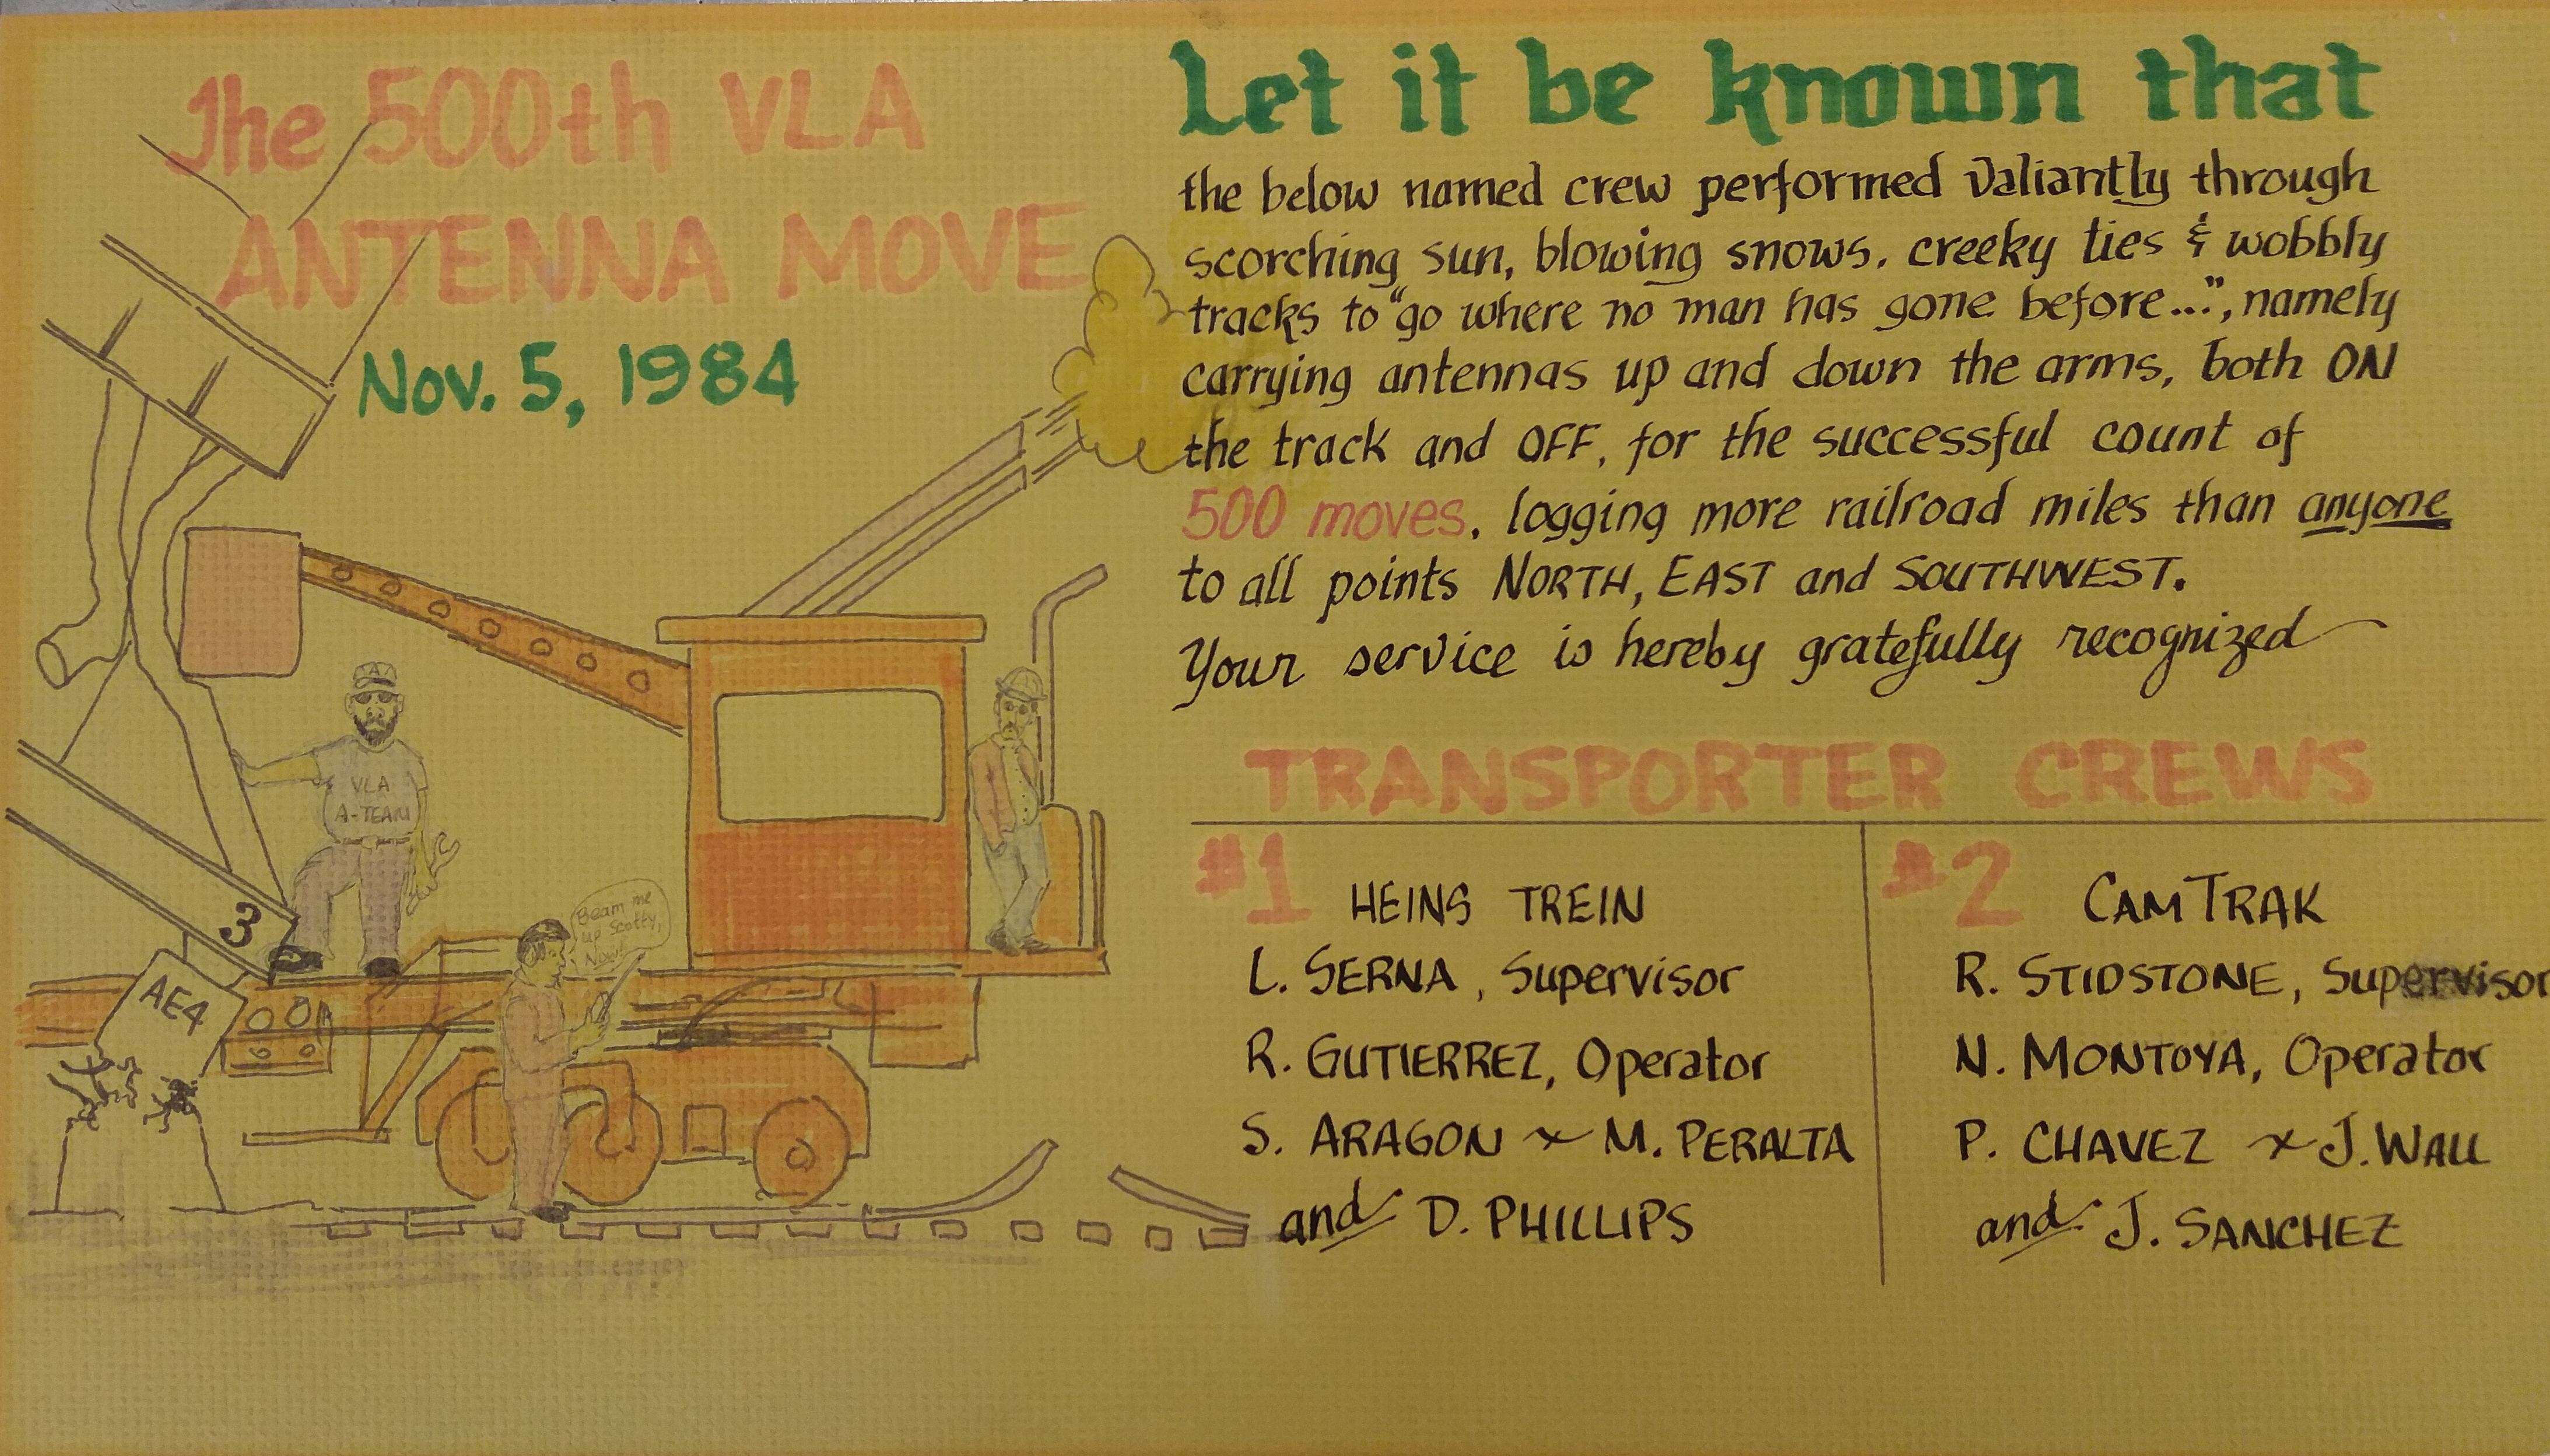 The 500th VLA
ANTENNA MOVE
Nov. 5, 1984
A
VLA
A-TEAM
Beam me
up Scotty,
Now!
3
AE4
Let it be known that
the below named crew performed valiantly through
scorching sun, blowing snows, creeky ties & wobbly
tracks to "go where no man has gone before...", namely
carrying antennas up and down the arms, both ON
the track and OFF, for the successful count of
500 moves, logging more railroad miles than anyone
to all points NORTH, EAST and SOUTHWEST.
Your service is hereby gratefully recognized
TRANSPORTER CREWS
#1 HEINS TREIN
L. SERNA, Supervisor
R. GUTIERREZ, Operator
S. ARAGON + M. PERALTA
and D. PHILLIPS
#2 CAMTRAK
R. STIDSTONE, Supervisor
N. MONTOYA, Operator
P. CHAVEZ + J. WALL
and J. SANCHEZ